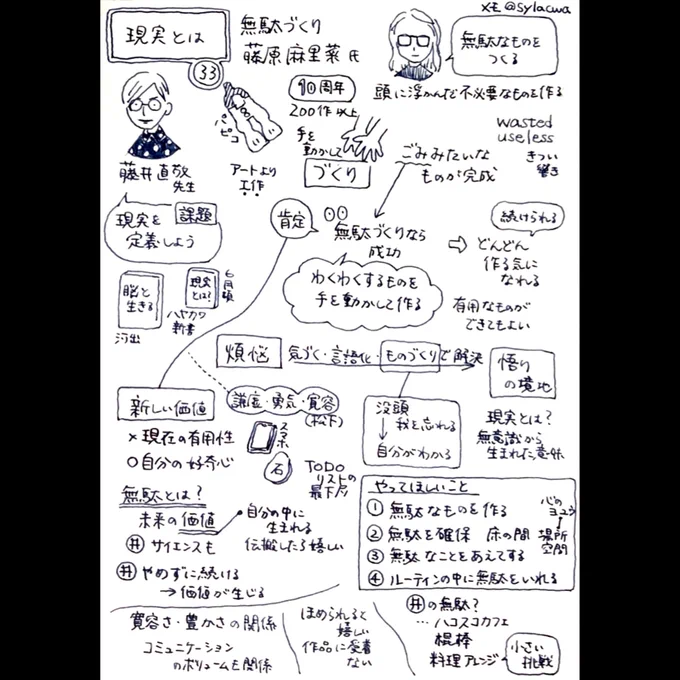 メモ @sylacwa
現実とは
33
無駄づくり
藤原麻里菜 氏
無駄なものを
つくる
頭に浮かんだ不必要なものを作る
10周年
200作以上
手を
動かして
づくり
wasted
useless
きつい
響き
ごみみたいな
ものが完成
パピコ
アートより
工作
藤井直敬
先生
課題
現実を
定義しよう
肯定
無駄づくりなら
成功
続けられる
どんどん
作る気に
なれる
わくわくするものを
手を動かして作る
有用なものが
できてもよい
脳と
生きる
河出
現実
とは?
6月頃
ハヤカワ
新書
煩悩
気づく・言語化・ものづくりで解決
悟り
の境地
新しい価値
謙虚・勇気・寛容
(松下)
×現在の有用性
○自分の好奇心
スマホ
石
TODO
リストの
最下層
没頭
我を忘れる
自分がわかる
現実とは?
無意識から
生まれた意味
無駄とは?
未来の価値
自分の中に
生まれる
伝搬したら嬉しい
井 サイエンスも
井 やめずに続ける
→価値が生じる
やってほしいこと
① 無駄なものを作る
② 無駄を確保 床の間
③ 無駄なことをあえてする
④ ルーティンの中に無駄をいれる
心の
ヨユウ
場所
空間
寛容さ・豊かさの関係
コミュニケーション
のボリュームも関係
ほめられると
嬉しい
作品に愛着
ない
井の無駄?
…ハコスコカフェ
棍棒
料理アレンジ
小さい
挑戦